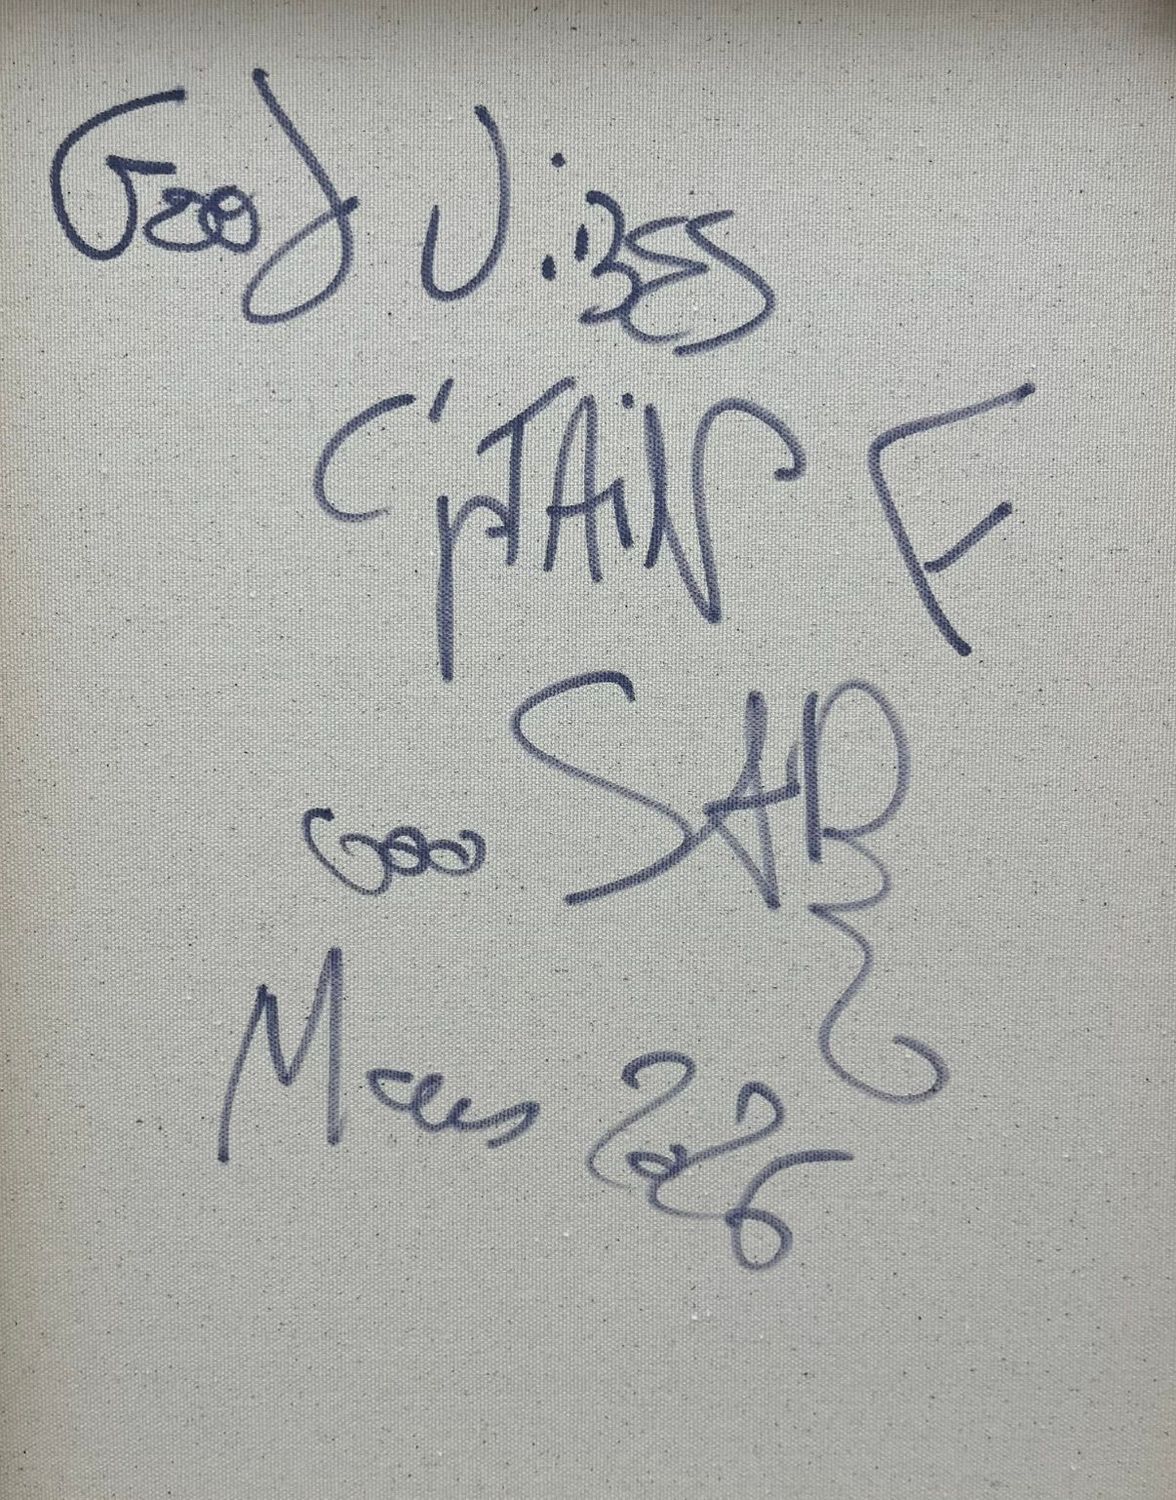 Good Vibes
C'pTAiN F
STAR
Mars 2026